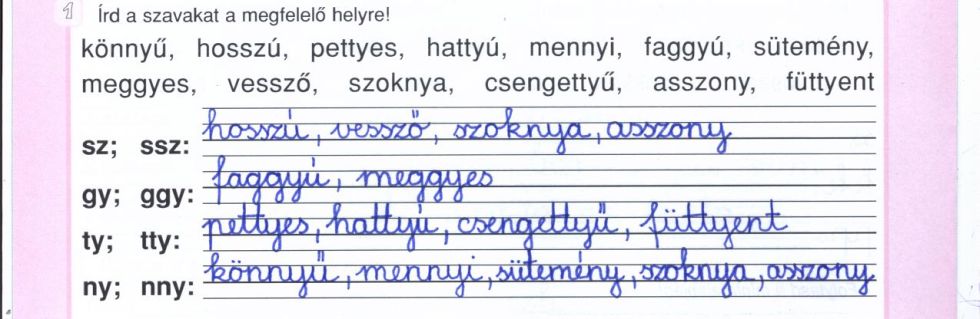 1 Írd a szavakat a megfelelő helyre!
könnyű, hosszú, pettyes, hattyú, mennyi, faggyú, sütemény,
meggyes, vessző, szoknya, csengettyű, asszony, füttyent
sz; ssz: hosszú, vessző, szoknya, asszony
gy; ggy: faggyú, meggyes
ty; tty: pettyes, hattyú, csengettyű, füttyent
ny; nny: könnyű, mennyi, sütemény, szoknya, asszony